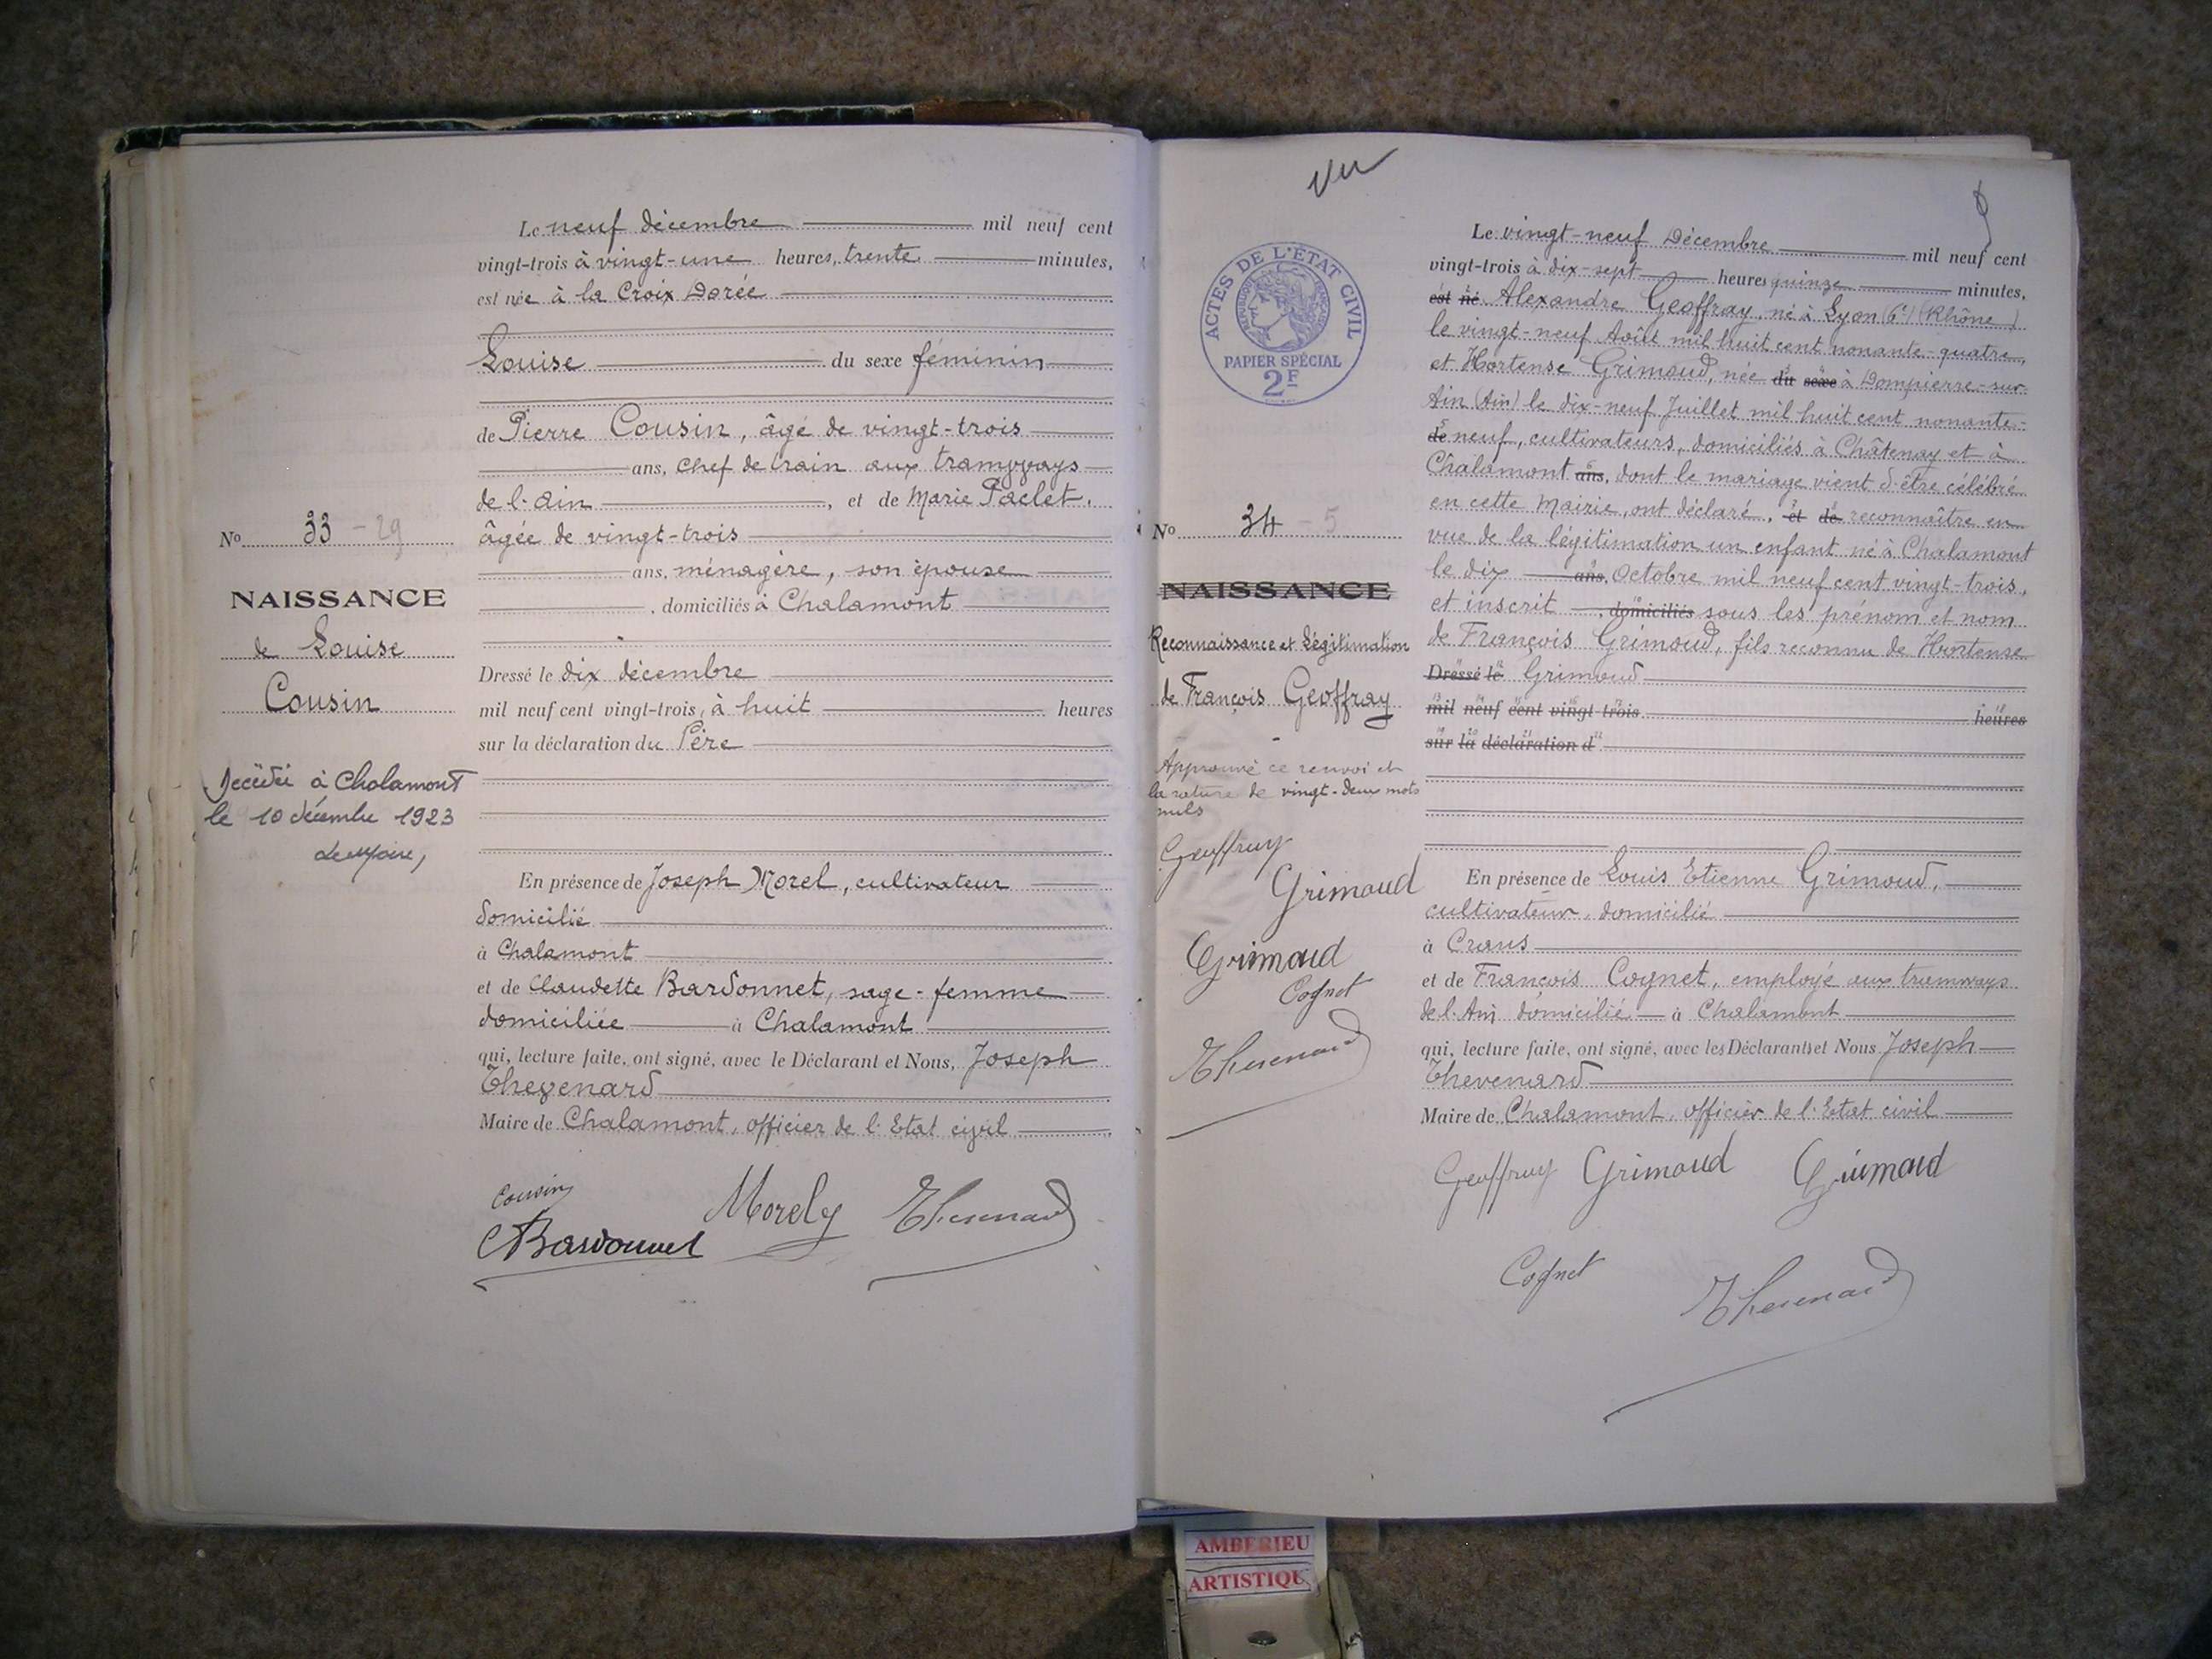 Le neuf décembre mil neuf cent
vingt-trois à vingt-une heures, trente minutes,
est née à la Croix Dorée
Louise du sexe féminin
de Pierre Cousin, âgé de vingt-trois
ans, chef de train aux tramways
de l'Ain, et de Marie Paclet,
âgée de vingt-trois
ans, ménagère, son épouse
, domiciliés à Chalamont
Dressé le dix décembre
mil neuf cent vingt-trois, à huit heures
sur la déclaration du Père
En présence de Joseph Morel, cultivateur
domicilié
à Chalamont
et de Claudette Bardonnet, sage-femme
domiciliée à Chalamont
qui, lecture faite, ont signé, avec le Déclarant et Nous, Joseph
Thevenard
Maire de Chalamont, officier de l'Etat civil
Cousin
Morel
Thevenard
CBardonnet
No 33 - 29
NAISSANCE
de Louise
Cousin
Décédée à Chalamont
le 10 décembre 1923
Le Maire,
Vu
ACTES DE L'ÉTAT CIVIL
RÉPUBLIQUE FRANÇAISE
PAPIER SPÉCIAL
2F
No 34 - 5
NAISSANCE
Reconnaissance et Légitimation
de François Geoffray
Approuvé ce renvoi et
la rature de vingt-deux mots
nuls
Geoffray
Grimaud
Grimaud
Cognet
Thevenard
Le vingt-neuf Décembre mil neuf cent
vingt-trois à dix-sept heures quinze minutes,
est né Alexandre Geoffray, né à Lyon (6e) (Rhône)
le vingt-neuf Août mil huit cent nonante-quatre,
et Hortense Grimaud, née du sexe à Dompierre-sur-
Ain (Ain) le dix-neuf Juillet mil huit cent nonante-
de neuf, cultivateurs, domiciliés à Châtenay et à
Chalamont ans, dont le mariage vient d'être célébré
en cette Mairie, ont déclaré, et de reconnaître en
vue de la légitimation un enfant né à Chalamont
le dix ans, Octobre mil neuf cent vingt-trois,
et inscrit , domiciliés sous les prénom et nom
de François Grimaud, fils reconnu de Hortense
Dressé le Grimaud
mil neuf cent vingt-trois heures
sur la déclaration d
En présence de Louis Etienne Grimaud,
cultivateur, domicilié
à Crans
et de François Cognet, employé aux tramways
de l'Ain domicilié à Chalamont
qui, lecture faite, ont signé, avec les Déclarants et Nous Joseph
Thevenard
Maire de Chalamont, officier de l'Etat civil
Geoffray Grimaud Grimaud
Cognet
Thevenard
AMBERIEU
ARTISTIQU